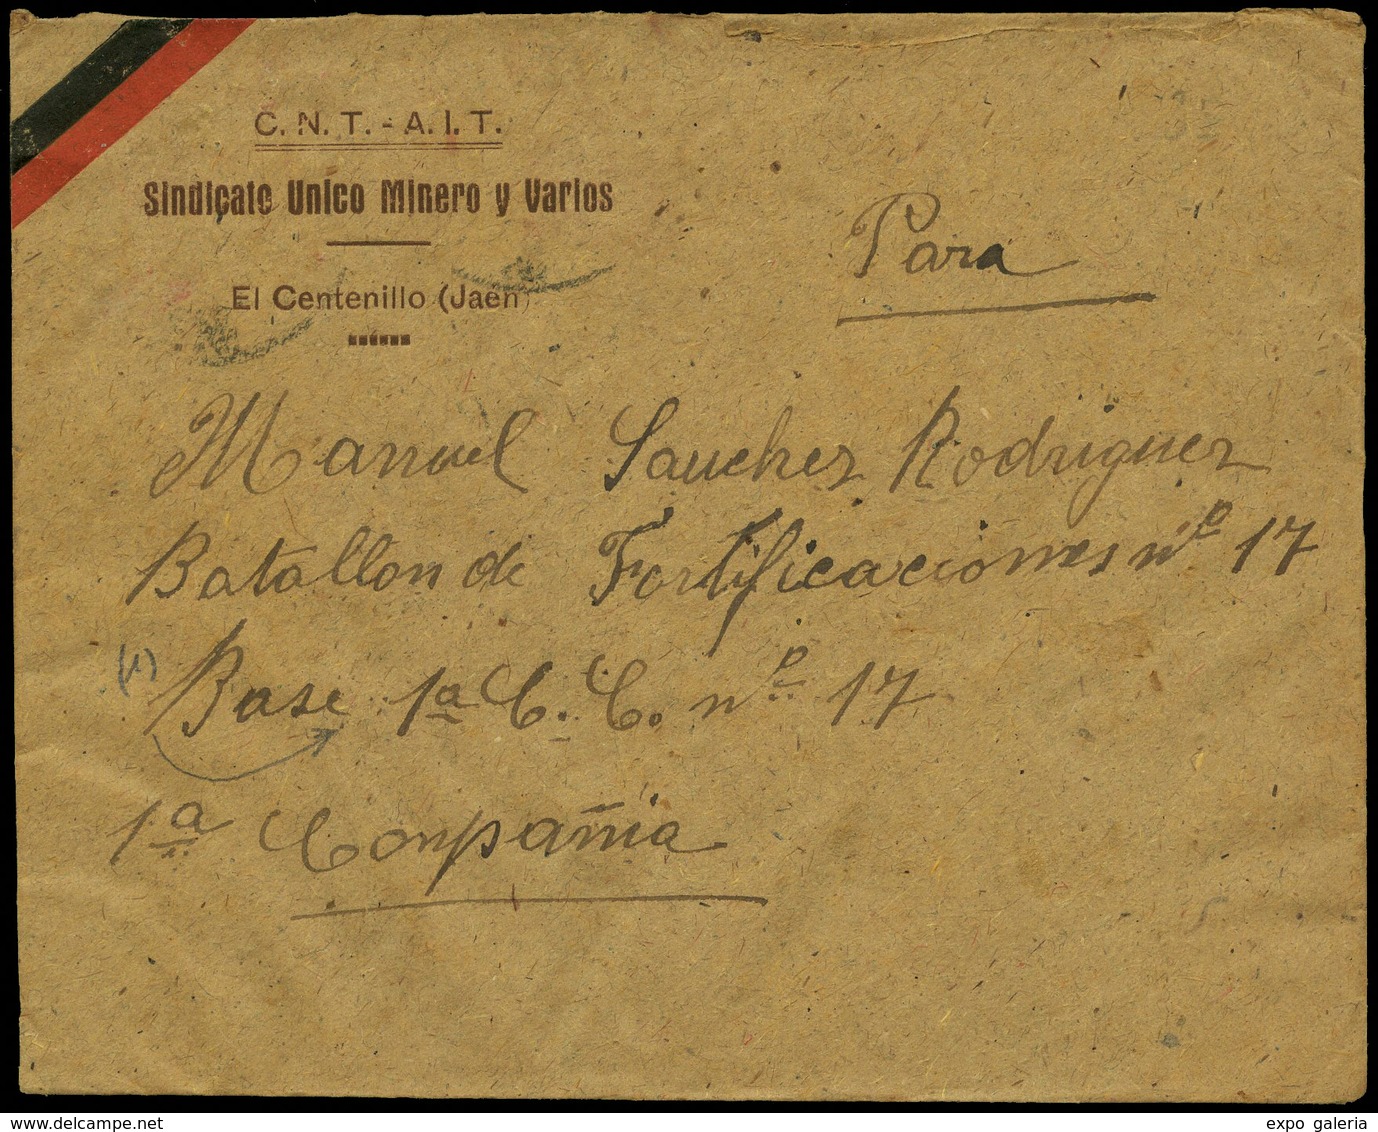 C. N. T. - A. I. T.
Sindicato Unico Minero y Varios
El Centenillo (Jaén)
Para
Manuel Sanchez Rodriguez
Batallon de Fortificaciones nº 17
(1)
Base 1ª C. C. nº 17
1ª Conpañia
www.delcampe.net
expo galeria